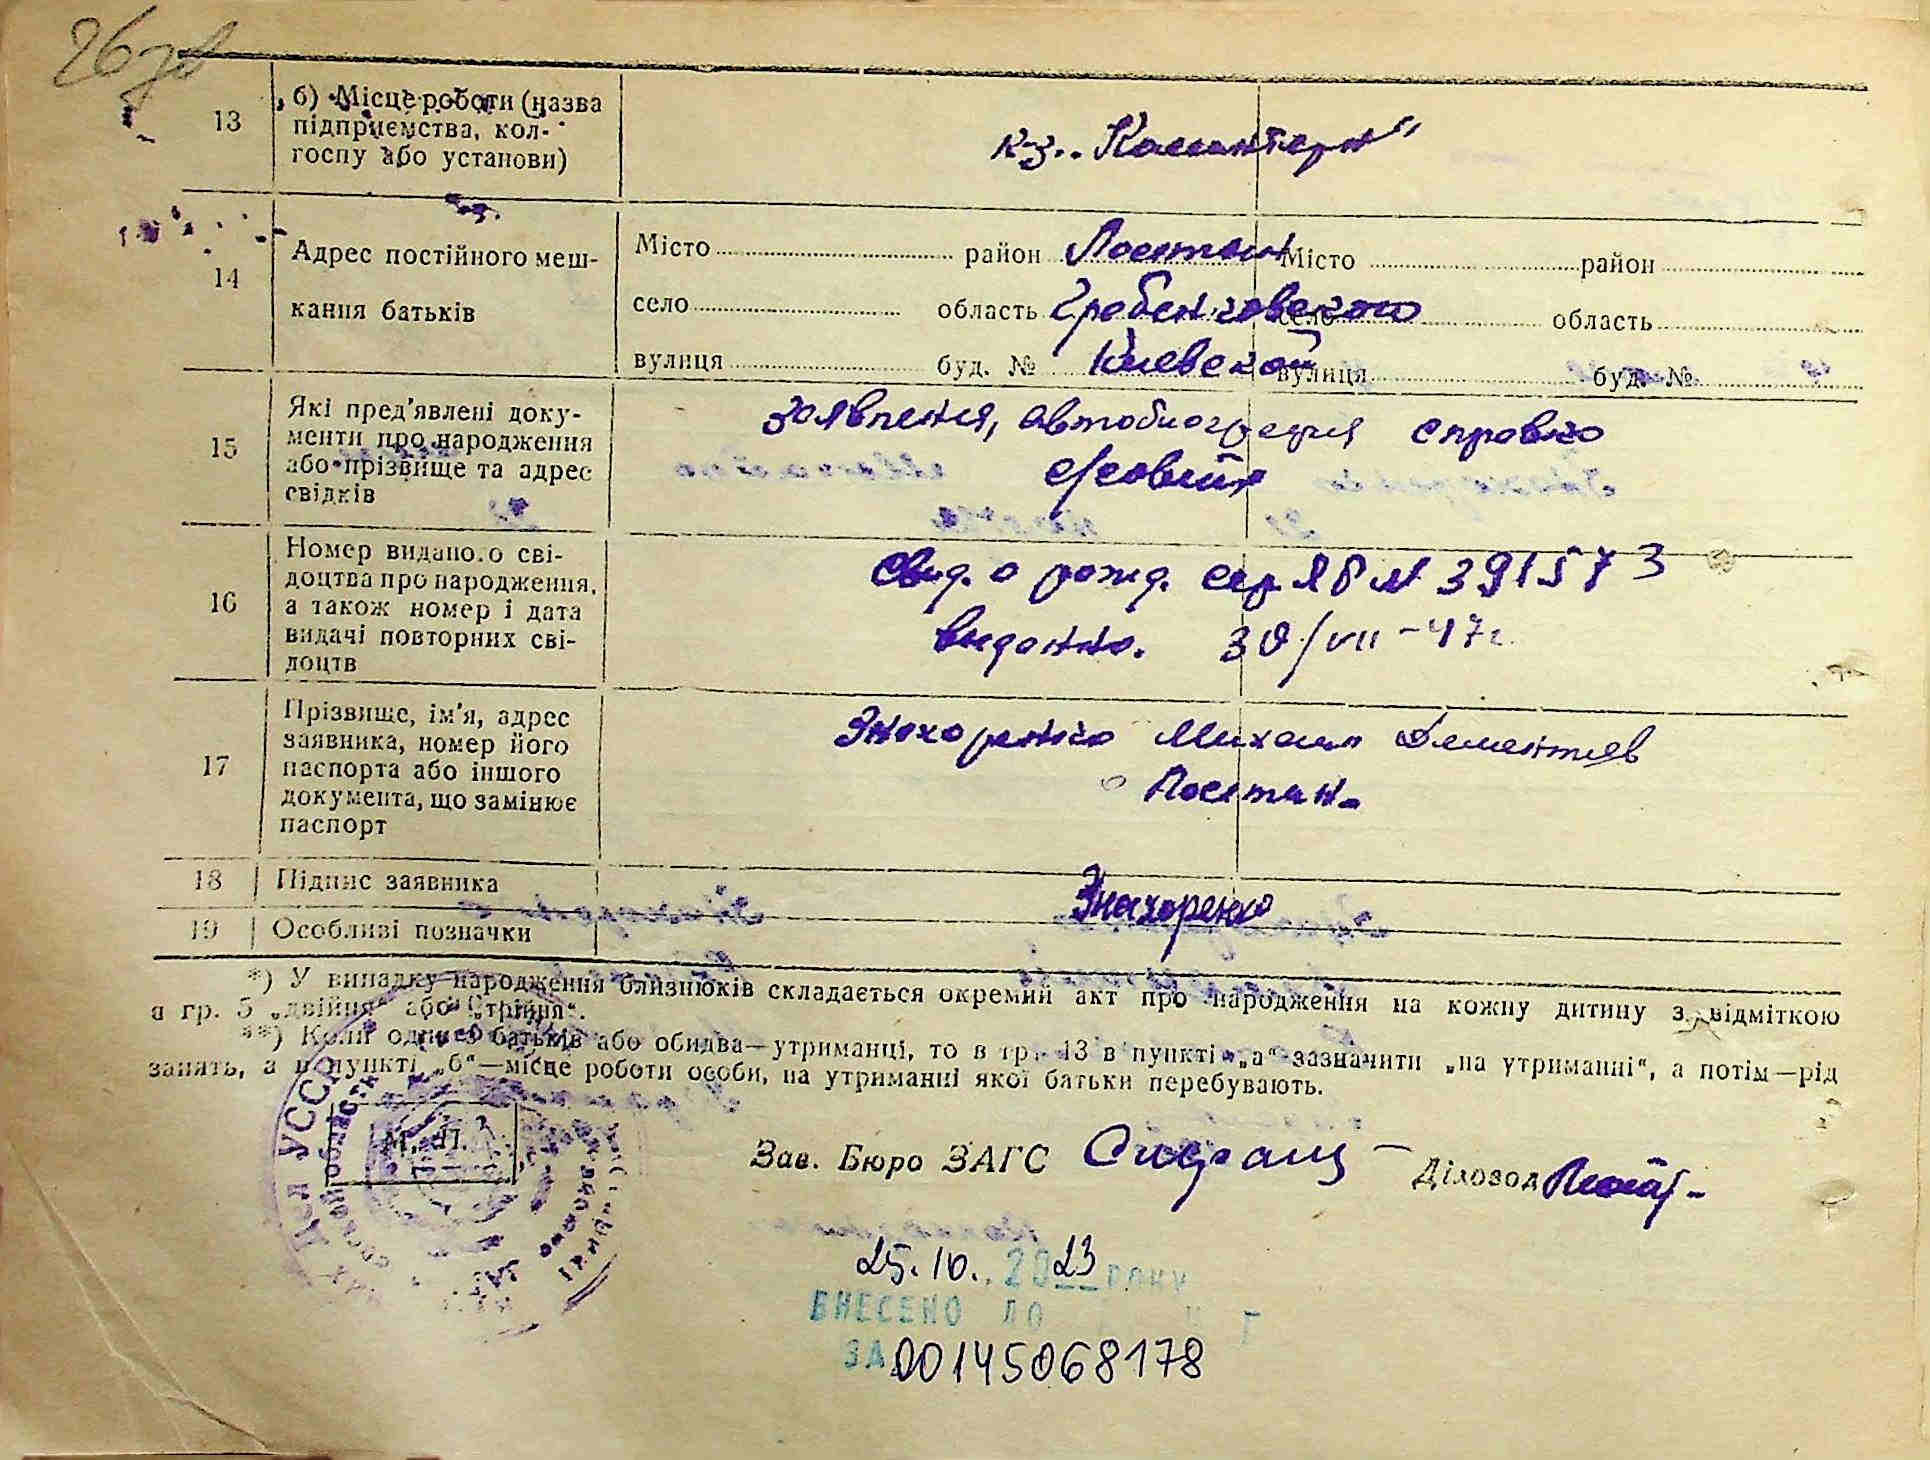 26 зв
13
б) Місце роботи (назва
підприємства, кол-
госпу або установи)
к-з „Коминтерн"
14
Адрес постійного меш-
кання батьків
Місто район Посттан Місто район
село область Гребенковского село область
вулиця буд. № Киевской вулиця буд. №
15
Які пред'явлені доку-
менти про народження
або прізвище та адрес
свідків
Заявления, автобиография справка
16
Номер виданого сві-
доцтва про народження,
а також номер і дата
видачі повторних сві-
доцтв
Свид. о рожд. сер ЯБ № 391573
виданно. 30/VII-47г.
17
Прізвище, ім'я, адрес
заявника, номер його
паспорта або іншого
документа, що замінює
паспорт
Знахоренко Михаил Дементиев
18
Підпис заявника
Знахоренко
19
Особливі позначки
*) У випадку народження близнюків складається окремий акт про народження на кожну дитину з відміткою
в гр. 5 „двійня" або „трійня".
**) Коли один з батьків або обидва—утриманці, то в гр. 13 в пункті „а" зазначити „на утриманні", а потім—рід
занять, а в пункті „б"—місце роботи особи, на утриманні якої батьки перебувають.
УССР
М. П.
Зав. Бюро ЗАГС
Діловод
25.10. 2023 року
ВНЕСЕНО ДО
ЗА 00145068178